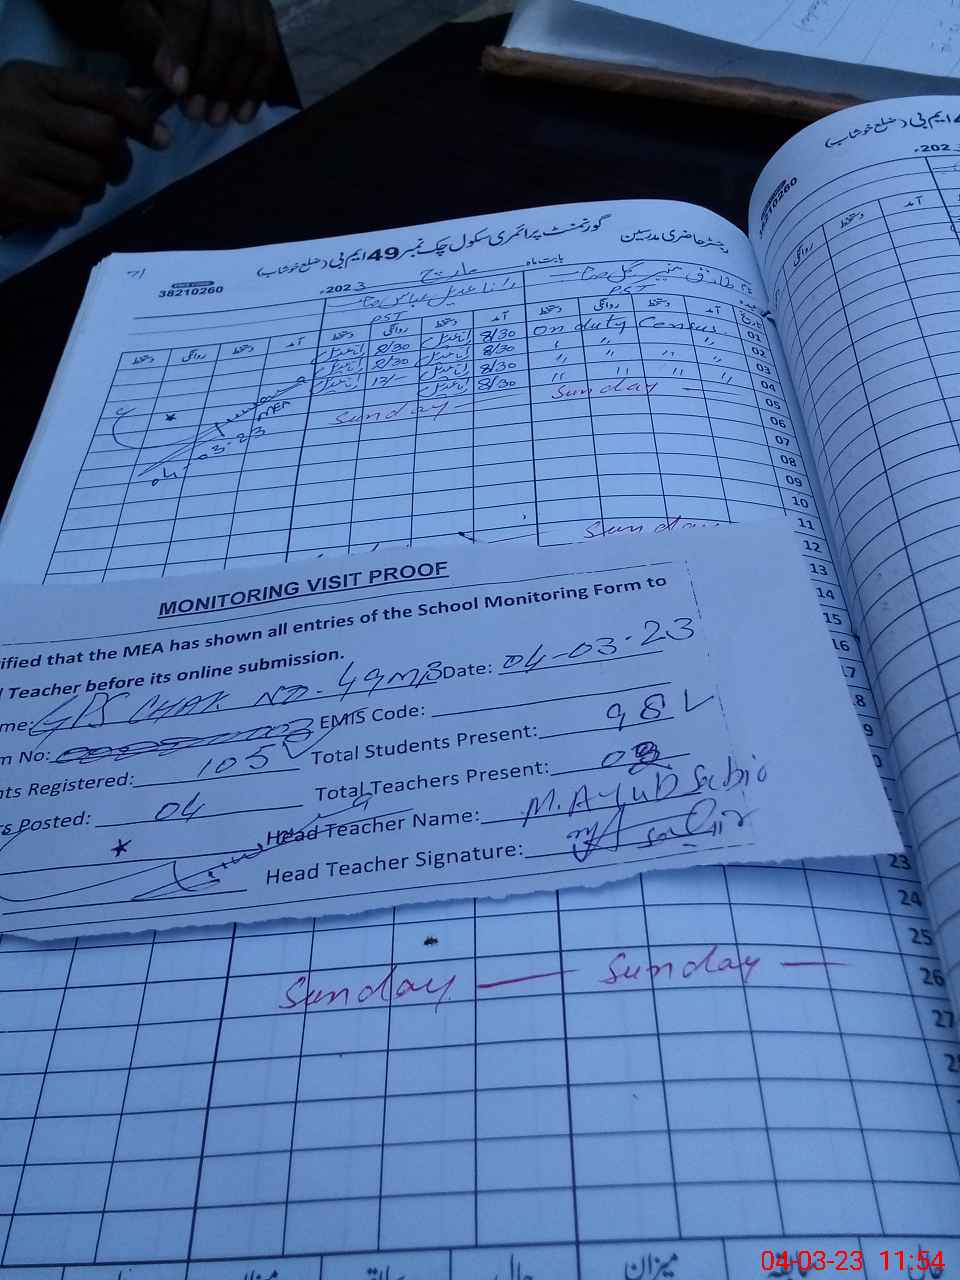 رجسٹر حاضری مدرسین گورنمنٹ پرائمری سکول چک نمبر 49 ایم بی (ضلع خوشاب)
38210260
بابت ماہ مارچ 2023ء
رانا عدیل عباس صاحب
PST PST
دستخط روانگی دستخط آمد دستخط روانگی دستخط آمد دستخط روانگی دستخط آمد تاریخ
8/30 8/30 On duty Census 01
8/30 8/30 " " " " 02
8/30 " " " " 03
Sunday Sunday 04
MEA 05
04-03-23 06
07
08
09
10
Sunday 11
12
13
14
15
16
MONITORING VISIT PROOF
ified that the MEA has shown all entries of the School Monitoring Form to
Teacher before its online submission.
me: GPS CHAK NO. 49MB Date: 04-03-23
m No: EMIS Code:
nts Registered: 105 Total Students Present: 98
s Posted: 04 Total Teachers Present: 03
Head Teacher Name: M. Ayub Sabir
Head Teacher Signature:
23
24
25
Sunday Sunday 26
27
میزان
ایم بی (ضلع خوشاب)
38210260
2023ء
روانگی دستخط آمد
04-03-23 11:54